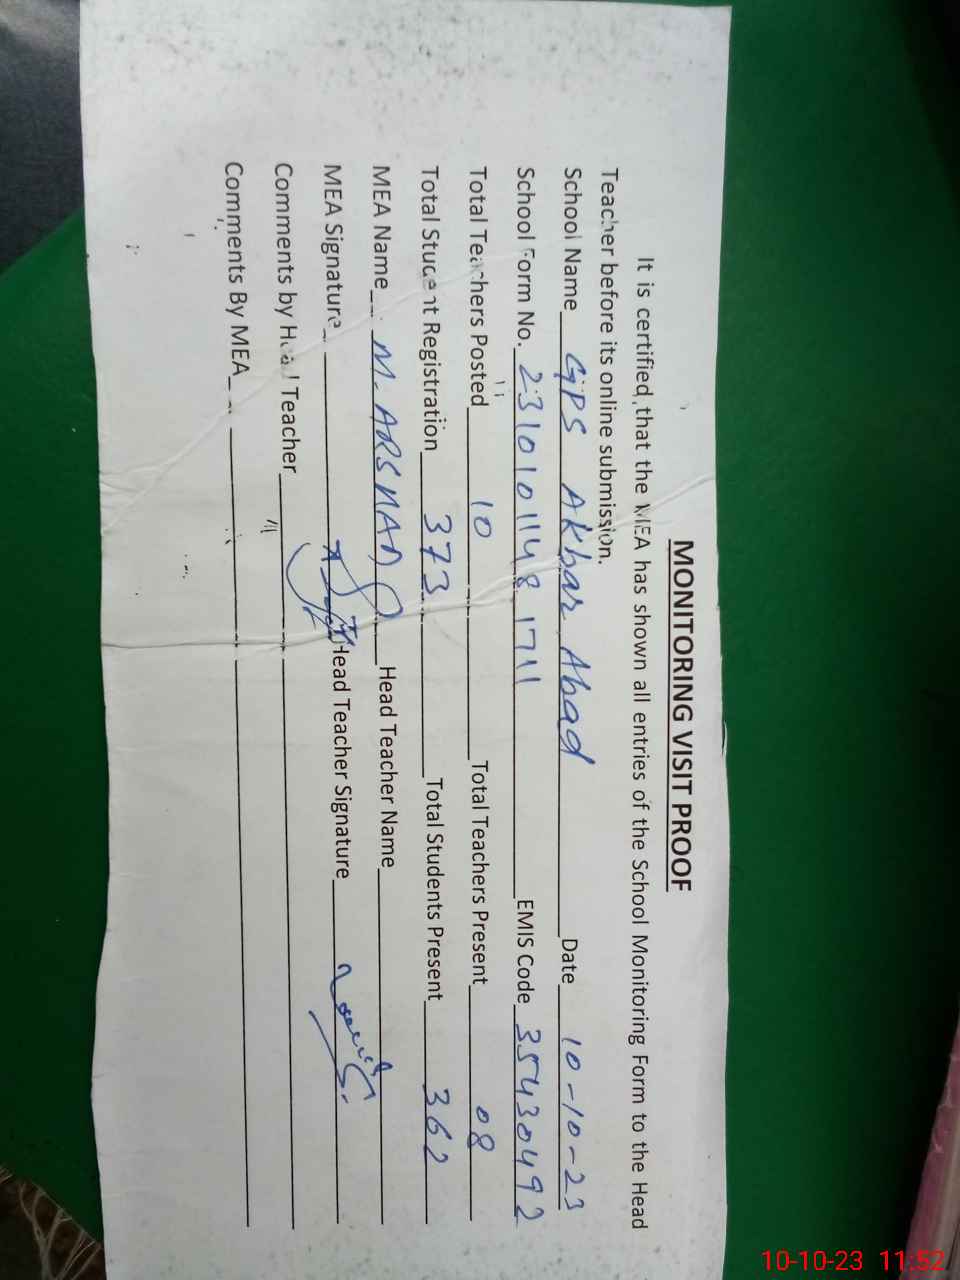 MONITORING VISIT PROOF
It is certified that the MEA has shown all entries of the School Monitoring Form to the Head
Teacher before its online submission.
School Name GPS Akbar Abad Date 10-10-23
School Form No. 23101011481711 EMIS Code 35430492
Total Teachers Posted 10 Total Teachers Present 08
Total Student Registration 373 Total Students Present 362
MEA Name M. ARSHAD Head Teacher Name
MEA Signature Head Teacher Signature
Comments by Head Teacher
Comments By MEA
10-10-23 11:52